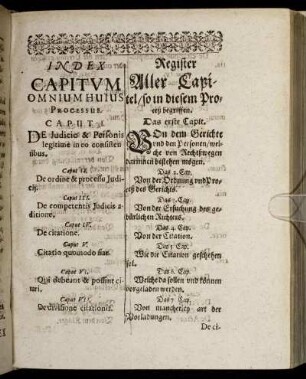 INDEX
CAPITVM
OMNIUM HUIUS
PROCESSUS.
CAPUT I.
DE Judicio & Personis
legitime in eo consisten
tibus.
Caput II.
De ordine & processu Judi-
cij.
Caput III.
De competentis Judicis a-
ditione.
Caput IV.
De citatione.
Caput V.
Citatio quomodo fiat.
Caput VI.
Qui debeant & possint ci-
tari.
Caput VII.
De divisione citationis.
Register
Aller Capi-
tel / so in diesem Pro-
ceß begriffen.
Das erste Capit.
Von dem Gerichte
und den Personen / wel-
che von Rechtswegen
darinnen bestehen mögen.
Das 2. Cap.
Von der Ordnung und Pro-
ceß des Gerichts.
Das 3. Cap.
Von der Ersuchung des ge-
bührlichen Richters.
Das 4. Cap.
Von der Citation.
Das 5. Cap.
Wie die Citation geschehen
sol.
Das 6. Cap.
Welche da sollen und können
vorgeladen werden.
Das 7. Cap.
Von mancherley art der
Vorladungen.
De ci-